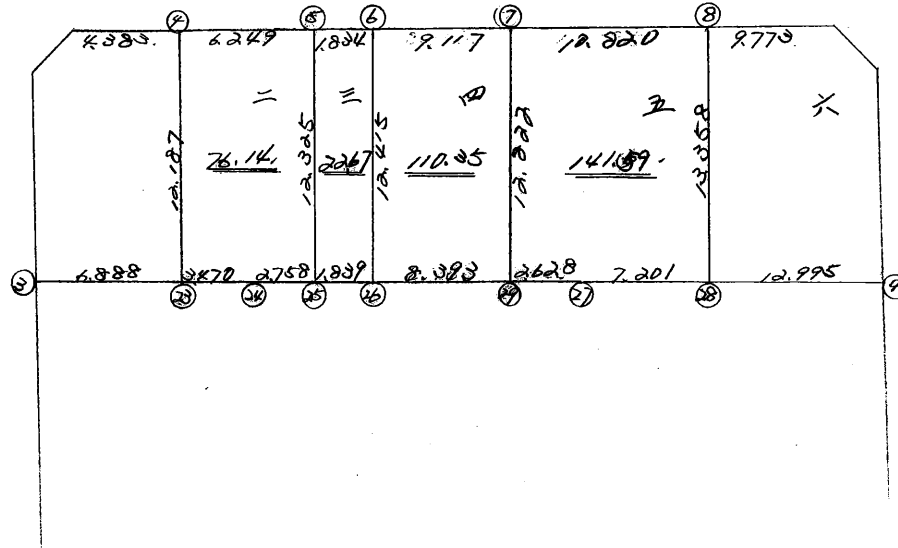 ④ ⑤ ⑥ ⑦ ⑧
4.383. 6.249 1.834 9.117 10.820 9.773
二 三 四 五 六
12.187 12.325 12.415 12.822 13.358
76.14. 22.67 110.35 141.59.
6.888 3.470 2.758 1.839 8.393 2.628 7.201 12.995
③ ㉓ ㉔ ㉕ ㉖ ㉙ ㉗ ㉘ ⑨